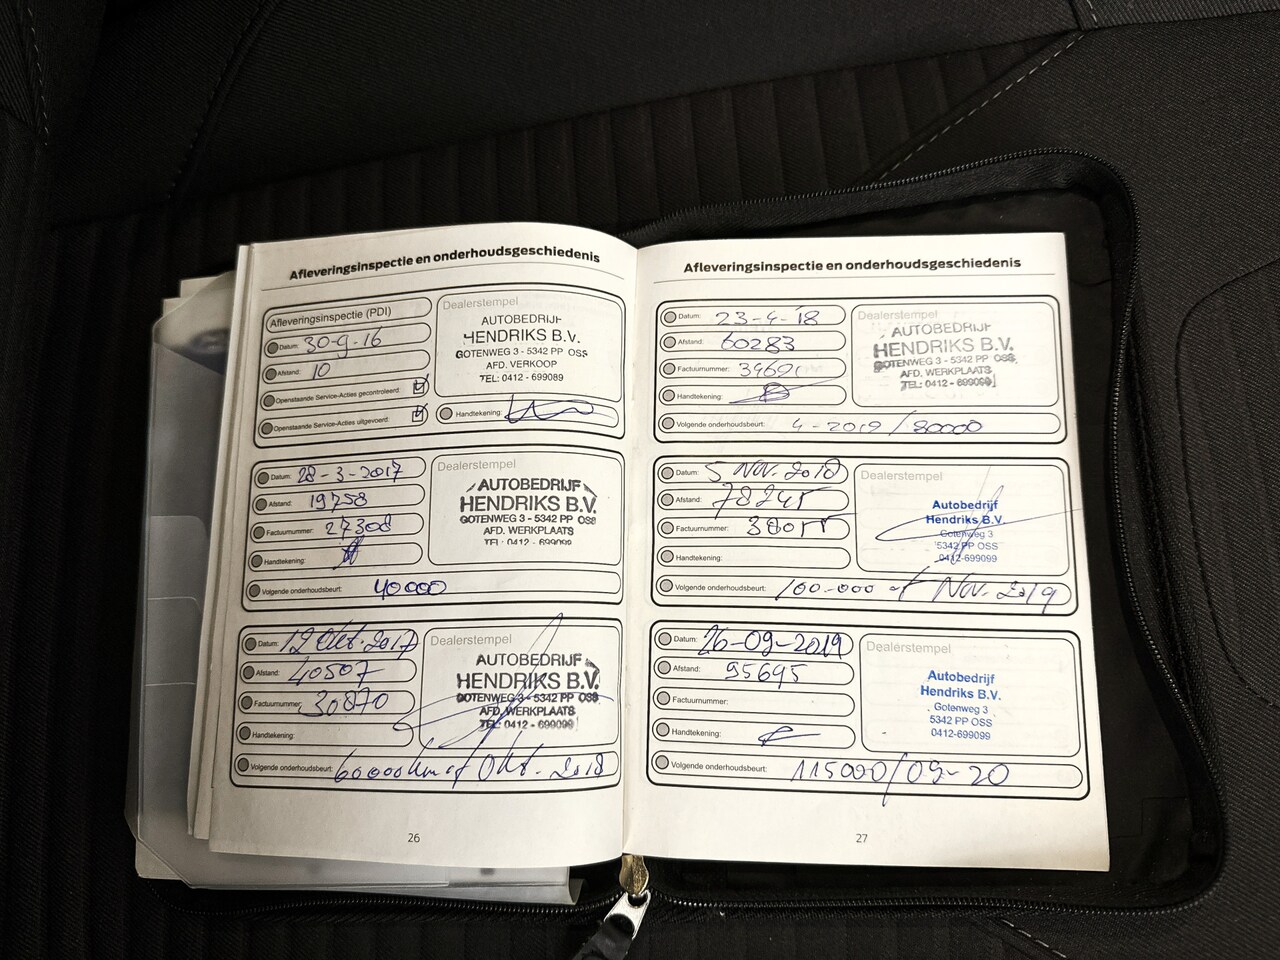 Afleveringsinspectie en onderhoudsgeschiedenis
Afleveringsinspectie (PDI)
Datum: 30-9-16
Afstand: 10
Openstaande Service-Acties gecontroleerd:
Openstaande Service-Acties uitgevoerd:
Dealerstempel
AUTOBEDRIJF
HENDRIKS B.V.
GOTENWEG 3 - 5342 PP OSS
AFD. VERKOOP
TEL: 0412 - 699089
Handtekening:
Datum: 28-3-2017
Afstand: 19758
Factuurnummer: 27308
Handtekening:
Dealerstempel
AUTOBEDRIJF
HENDRIKS B.V.
GOTENWEG 3 - 5342 PP OSS
AFD. WERKPLAATS
TEL: 0412 - 699099
Volgende onderhoudsbeurt: 40000
Datum: 12 Okt. 2017
Afstand: 40507
Factuurnummer: 30870
Handtekening:
Dealerstempel
AUTOBEDRIJF
HENDRIKS B.V.
GOTENWEG 3 - 5342 PP OSS
AFD. WERKPLAATS
TEL: 0412 - 699099
Volgende onderhoudsbeurt: 60000km of Okt. 2018
26
Afleveringsinspectie en onderhoudsgeschiedenis
Datum: 23-4-'18
Afstand: 60283
Factuurnummer:
Handtekening:
Dealerstempel
AUTOBEDRIJF
HENDRIKS B.V.
GOTENWEG 3 - 5342 PP OSS
AFD. WERKPLAATS
TEL: 0412 - 699099
Volgende onderhoudsbeurt: 4-2019 / 80000
Datum: 5 Nov. 2018
Afstand: 78245
Factuurnummer: 38055
Handtekening:
Dealerstempel
Autobedrijf
Hendriks B.V.
Gotenweg 3
5342 PP OSS
0412-699099
Volgende onderhoudsbeurt: 100.000 of Nov. 2019
Datum: 26-09-2019
Afstand: 95695
Factuurnummer:
Handtekening:
Dealerstempel
Autobedrijf
Hendriks B.V.
Gotenweg 3
5342 PP OSS
0412-699099
Volgende onderhoudsbeurt: 115000/09-20
27